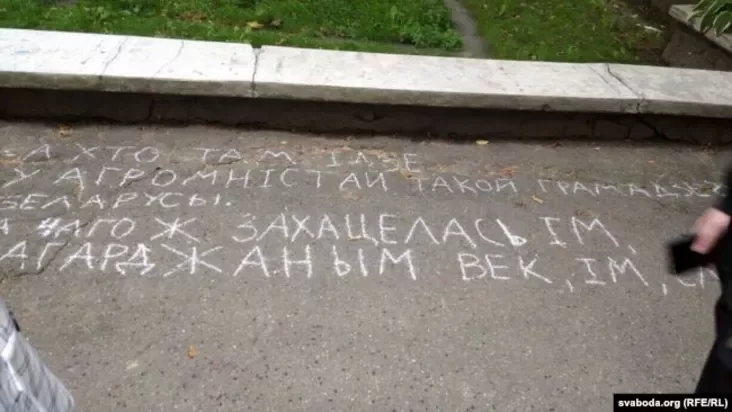 А ХТО ТАМ ІДЗЕ
У АГРОМНІСТАЙ ТАКОЙ ГРАМАДЗЕ
БЕЛАРУСЫ.
А ЧАГО Ж ЗАХАЦЕЛАСЬ ІМ,
ПАГАРДЖАНЫМ ВЕК, ІМ,
svaboda.org (RFE/RL)